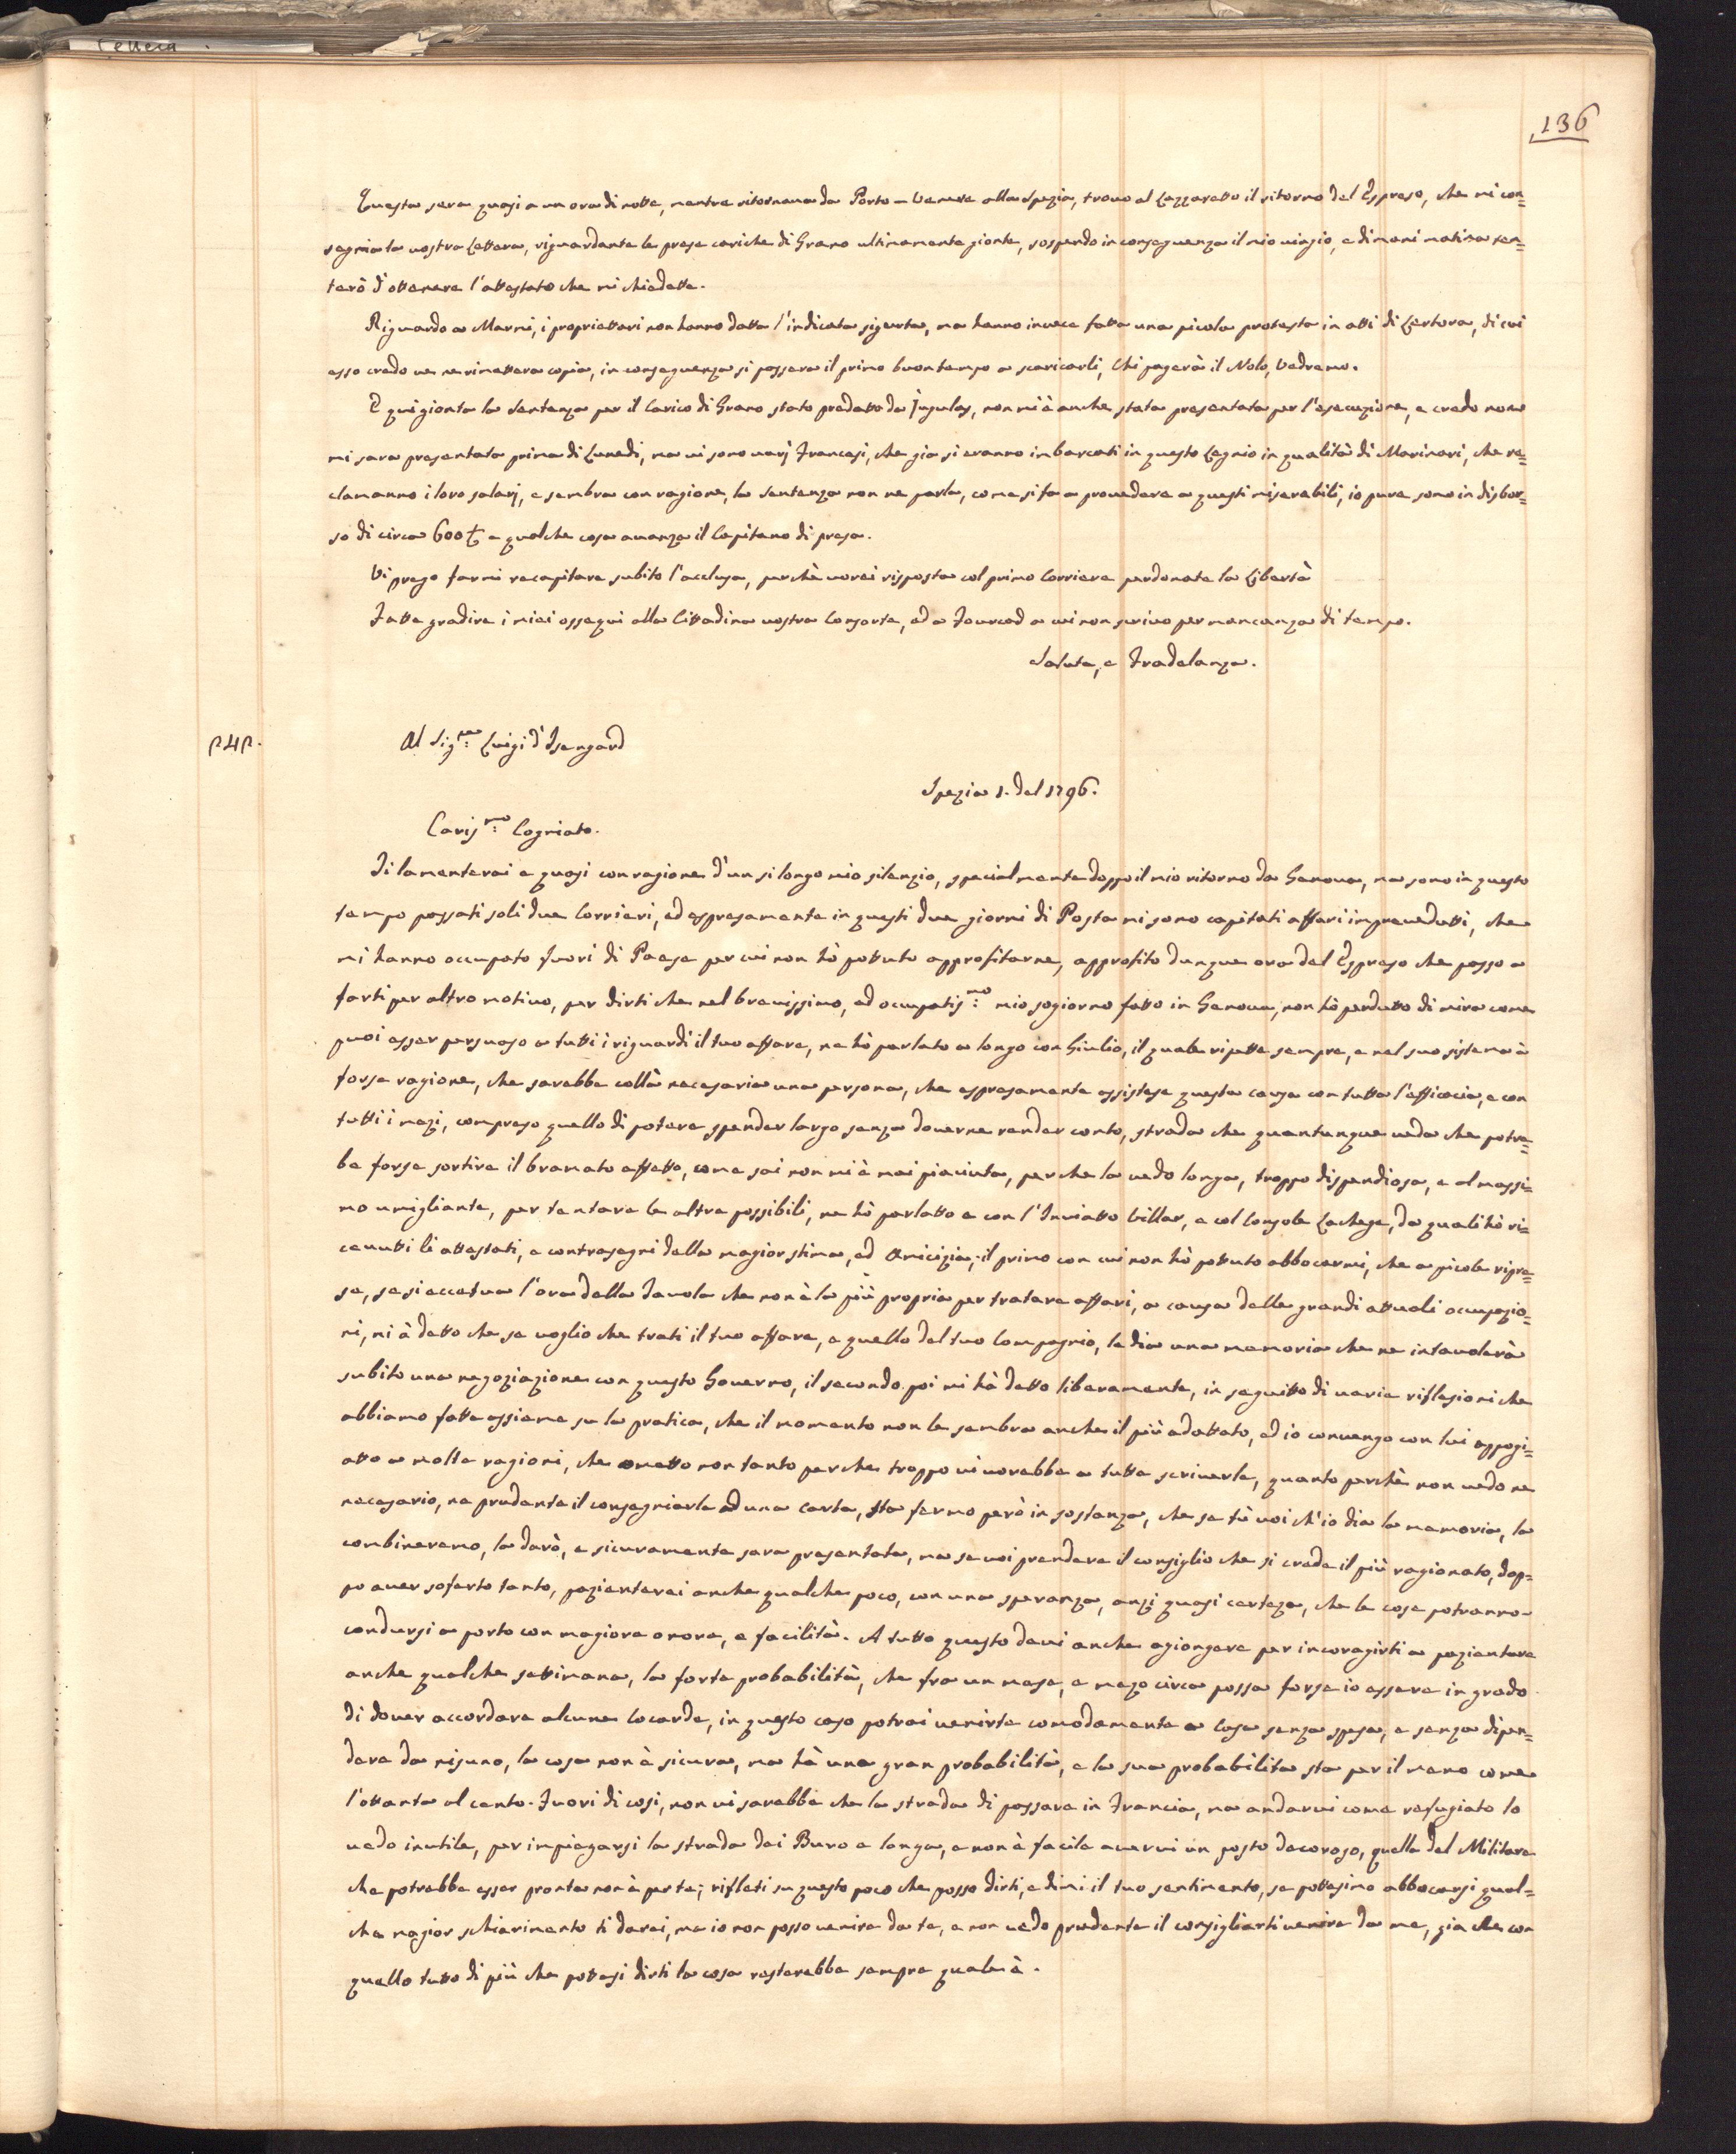 Lettera
136
Questa sera quasi a un ora di notte, mentre ritornava da Porto-Venere alla Spezia, trovo al Lazzaretto il ritorno del Espreso, che mi con=
segnia la vostra Lettera, riguardante le prese cariche di Grano ultimamente gionte, sospendo in conseguenza il mio viagio, e dimani matina ten=
terò d'ottenere l'attestato che mi chiedette.
Riguardo a Marmi, i proprietari non hanno datta l'indicata sigurta, ma hanno invece fatta una picola protesta in atti di Certora, di cui
esso credo ve ne rimettera copia, in conseguenza si passera il primo buon tempo a scaricarli, Chi pagerà il Nolo, Vedremo.
E qui gionta la Sentenza per il Carico di Grano stato predatto da Jugulas, non mi è anche stata presentata per l'esecuzione, e credo non
mi sara presentata prima di Lunedi, ma vi sono varj Francesi, che gia si eranno imbarcati in questo Legnio in qualità di Marinari, che re=
clamanno i loro salarj, e sembra con ragione, la Sentenza non ne parla, come si fa a provedere a questi miserabili, io pure sono in disbor=
so di circa 600 £ e qualche cosa avanza il Capitano di presa.
Vi prego farmi recapitare subito l'acclusa, perchè vorei risposta col primo Corriere perdonate la Libertà
Fatte gradire i miei ossequi alla Cittadina vostra Consorte, ed a Fourcad a cui non scrivo per mancanza di tempo.
Salute, e Fradelanza.
P4P.
Al Sig.re Luigi d'Isengard
Spezia 1. del 1796.
Caris.mo Cogniato.
Ti lamenterai e quasi con ragione d'un si longo mio silenzio, specialmente doppo il mio ritorno da Genova, ma sono in questo
tempo passati soli due Corrieri, ed espresamente in questi due giorni di Posta mi sono capitati affari imprevedutti, che
mi hanno occupato fuori di Paese per cui non hò pottuto approfitarne, approfito dunque ora del Espreso che passo a
farti per altro motivo, per dirti che nel brevissimo, ed occupatis.mo mio sogiorno fatto in Genova, non hò perdutto di mira come
puoi esser persuaso a tutti i riguardi il tuo affare, ne hò parlato a longo con Giulio, il quale ripette sempre, e nel suo sistema à
forse ragione, che sarebbe collà necesaria una persona, che espresamente assistese questa causa con tutta l'efficacia, e con
tutti i mezi, compreso quello di potere spender largo senza doverne render conto, strada che quantunque veda che potre=
be forse sortire il bramato effetto, come sai non mi è mai piaciuta, per che la vedo longa, troppo dispendiosa, e al massi=
mo umigliante, per tentare le altre possibili, ne hò parlatto e con l'Inviatto Villar, e col Console Lachege, da quali hò ri=
cevutti li attestati, e contrasegni della magior stima, ed Amicizia; il primo con cui non hò pottuto abbocarmi, che a picole ripre=
se, se si eccetua l'ora della Tavola che non è la più propria per tratare affari, a causa delle grandi attuali occupazio=
ni, mi à detto che se voglio che trati il tuo affare, e quello del tuo Compagnio, le dia una memoria che ne intavolerà
subito una negoziazione con questo Governo, il secondo poi mi hà detto liberamente, in seguitto di varie riflesioni che
abbiamo fatte assieme su la pratica, che il momento non le sembra anche il più adattato, ed io convengo con lui appogi=
atto a molte ragioni, che ometto non tanto perche troppo vi vorebbe a tutte scriverle, quanto perchè non vedo ne
necesario, ne prudente il consegniarle ad una carta, sta fermo però in sostanza, che se tù voi ch'io dia la memoria, la
combineremo, la darò, e sicuramente sara presentata, ma se voi prendere il consiglio che si crede il più ragionato, dop=
po aver soferto tanto, pazienterei anche qualche poco, con una speranza, anzi quasi certeza, che le cose potranno
condursi a porto con magiore onore, e facilità. A tutto questo devi anche agiongere per incoragirti a pazientare
anche qualche settimana, la forte probabilità, che fra un mese, e mezo circa possa forse io essere in grado
di dover accordare alcune Cocarde, in questo caso potrai venirte comodamente a Casa senza spesa, e senza dipen=
dere da nisuno, la cosa non è sicura, ma hà una gran probabilità, e la sua probabilità sta per il meno come
l'ottanta al cento. Fuori di cosi, non vi sarebbe che la strada di passare in Francia, ma andarvi come refugiato lo
vedo inutile, per impiegarsi la strada dei Buro e longa, e non è facile avervi un posto decoroso, quella del Militare
che potrebbe esser pronta non è per te; rifleti su questo poco che posso dirti, e dimi il tuo sentimento, se pottesimo abbocarsi qual=
che magior schiarimento ti darei, ma io non posso venire da te, e non vedo prudente il consigliarti venire da me, gia che con
quello tutto di più che pottesi dirti la cosa resterebbe sempre quale è.